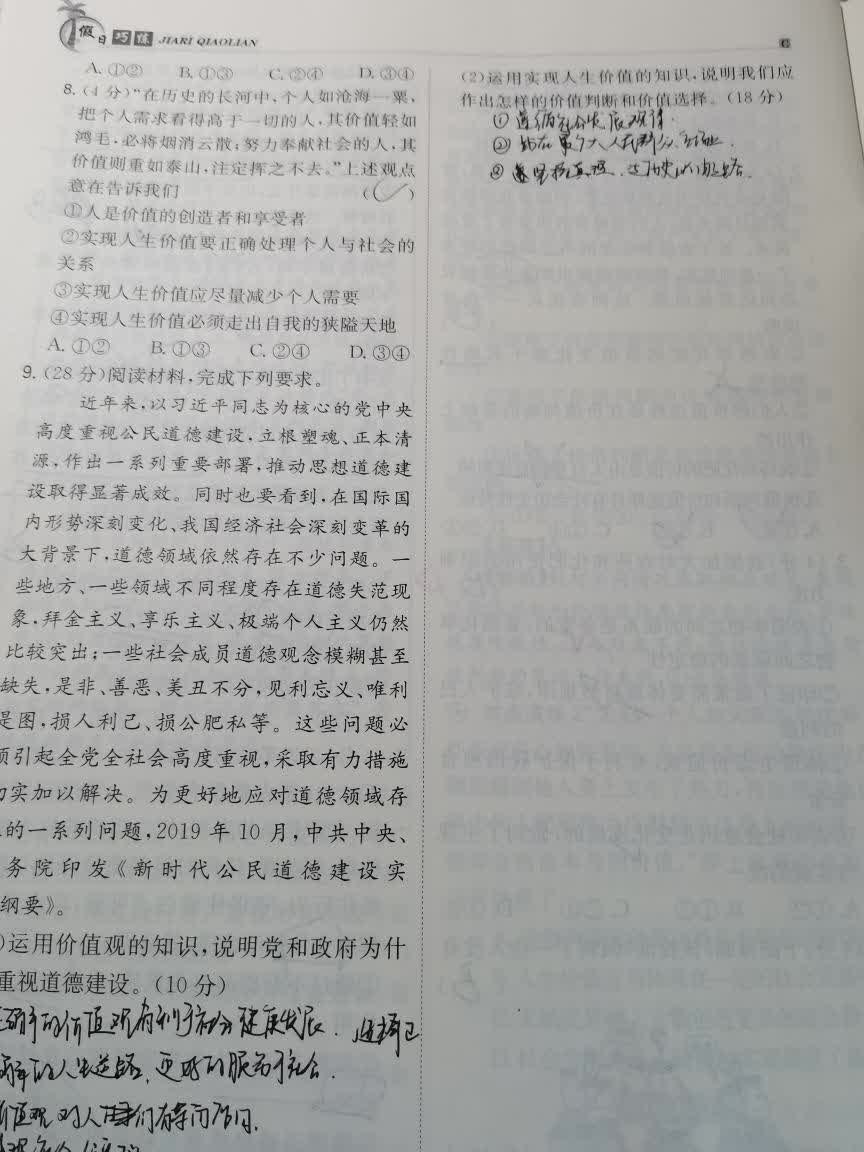 假日巧练 JIARI QIAOLIAN
A. ①② B. ①③ C. ②④ D. ③④
8. (4 分)“在历史的长河中,个人如沧海一粟,
把个人需求看得高于一切的人,其价值轻如
鸿毛,必将烟消云散;努力奉献社会的人,其
价值则重如泰山,注定挥之不去。”上述观点
意在告诉我们 ( C )
①人是价值的创造者和享受者
②实现人生价值要正确处理个人与社会的
关系
③实现人生价值应尽量减少个人需要
④实现人生价值必须走出自我的狭隘天地
A. ①② B. ①③ C. ②④ D. ③④
9. (28 分)阅读材料,完成下列要求。
近年来,以习近平同志为核心的党中央
高度重视公民道德建设,立根塑魂、正本清
源,作出一系列重要部署,推动思想道德建
设取得显著成效。同时也要看到,在国际国
内形势深刻变化、我国经济社会深刻变革的
大背景下,道德领域依然存在不少问题。一
些地方、一些领域不同程度存在道德失范现
象,拜金主义、享乐主义、极端个人主义仍然
比较突出;一些社会成员道德观念模糊甚至
缺失,是非、善恶、美丑不分,见利忘义、唯利
是图,损人利己、损公肥私等。这些问题必
须引起全党全社会高度重视,采取有力措施
切实加以解决。为更好地应对道德领域存
的一系列问题,2019 年 10 月,中共中央、
务院印发《新时代公民道德建设实
纲要》。
)运用价值观的知识,说明党和政府为什
重视道德建设。(10 分)
正确的价值观有利于社会健康发展.
的人生道路,更好的服务于社会.
价值观对人们有导向作用.
(2)运用实现人生价值的知识,说明我们应
作出怎样的价值判断和价值选择。(18 分)
① 遵循社会发展规律.
② 站在最广大人民群众立场上.
③